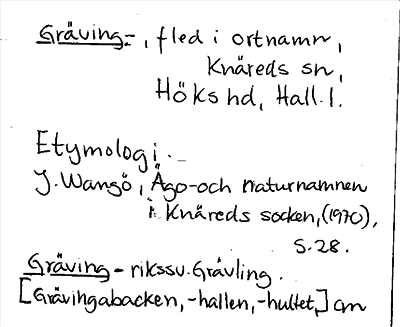 Gräving-, fled i ortnamn,
Knäreds sn,
Höks hd, Hall. l.
Etymologi.-
J. Wangö, Ägo- och naturnamnen
i Knäreds socken, (1970),
s. 28.
Gräving - rikssv. Grävling.
[Grävingabacken, -hallen, -hultet,] cm